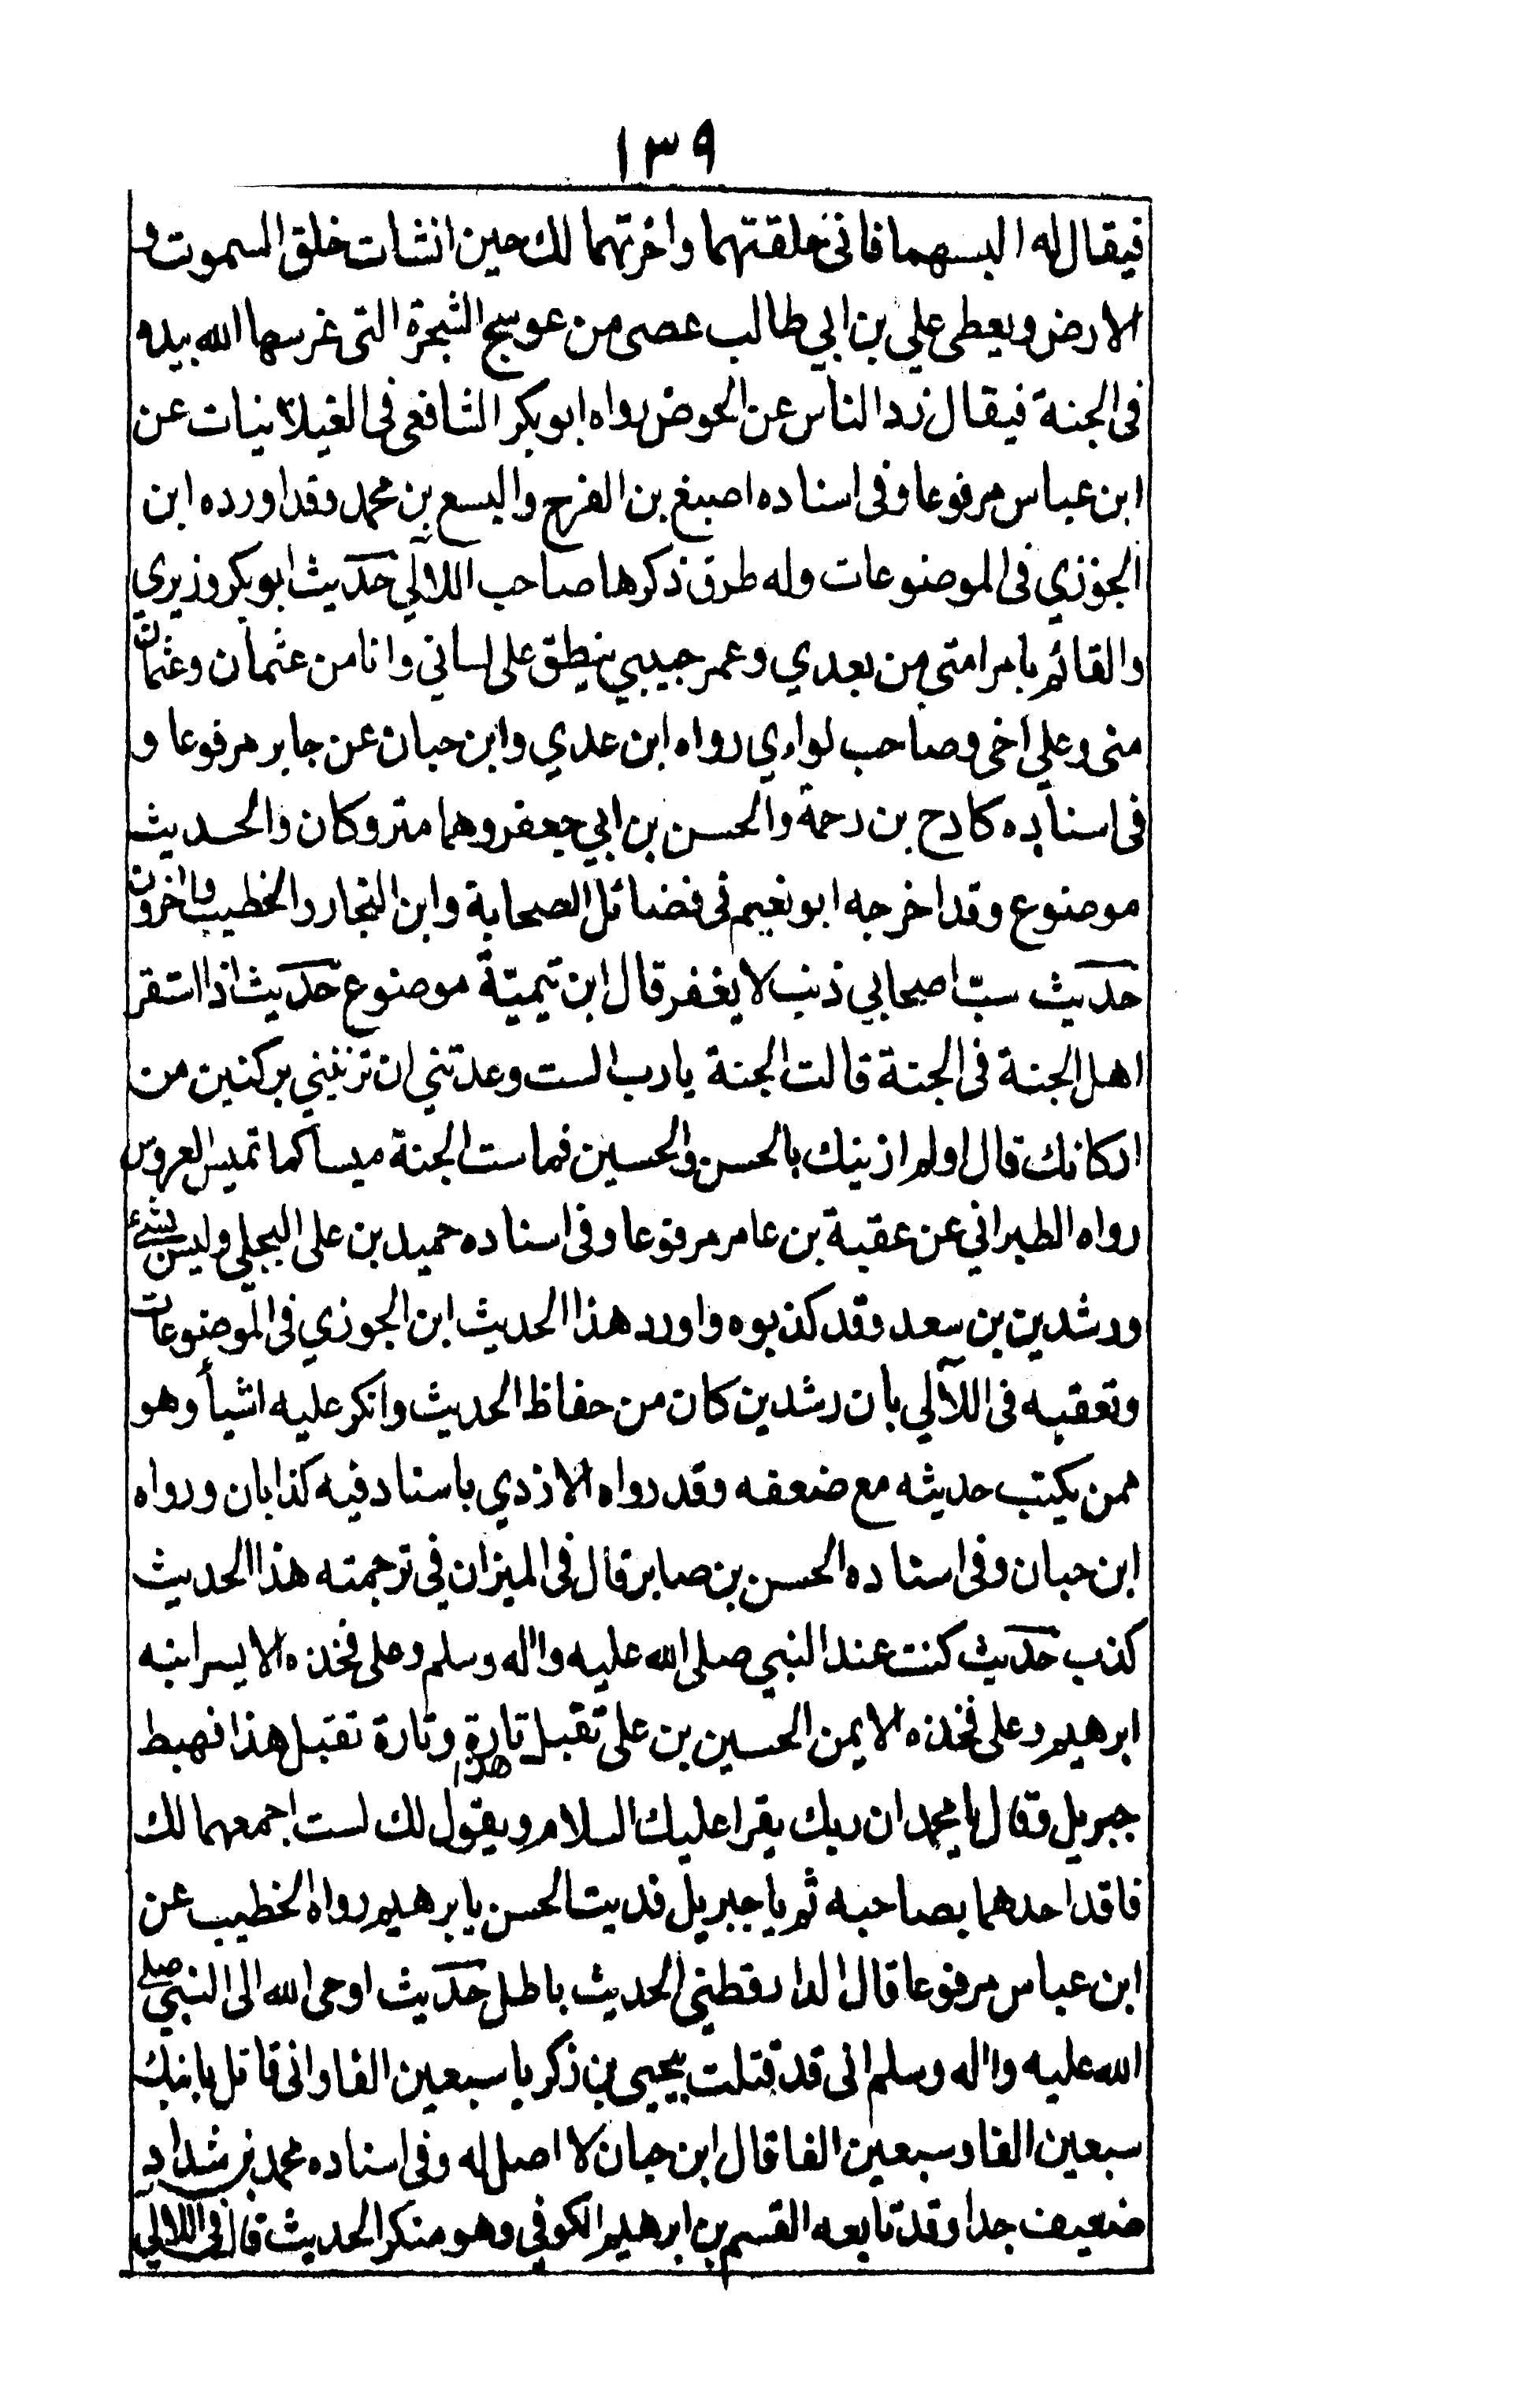 ١٣٩
فيقال له البسهما فانى خلقتهما واخرتهما لك حين انشات خلق السموت و
الارض ويعطى علي بن ابي طالب عصى من عوسج الشجرة التى غرسها الله بيده
فى الجنة فيقال زد الناس عن الحوض رواه ابو بكر الشافعى فى الغيلانيات عن
ابن عباس مرفوعا وفى اسناده اصبغ بن الفرج واليسع بن محمد وقد اورده ابن
الجوزي فى الموضوعات وله طرق ذكرها صاحب اللالي حديث ابو بكر وزيري
والقائم بامر امتي من بعدي وعمر حبيبي ينطق على لساني وانا من عثمان وعثمان
منى وعلي اخى وصاحب لواءي رواه ابن عدي وابن حبان عن جابر مرفوعا و
فى اسناده كادح بن رحمة والحسن بن ابي جعفر وهما متروكان والحديث
موضوع وقد اخرجه ابو نعيم فى فضائل الصحابة وابن النجار والخطيب واخرون
حديث سبّ اصحابي ذنب لا يغفر قال ابن تيميّة موضوع حديث اذا استقر
اهل الجنة فى الجنة قالت الجنة يا رب الست وعدتني ان تزينني بركنين من
اركانك قال اولم ازينك بالحسن والحسين فماست الجنة ميسا كما تميس العروس
رواه الطبراني عن عقبة بن عامر مرفوعا وفى اسناده حميد بن على البجلي وليس بشئ
ورشدين بن سعد وقد كذبوه واورد هذا الحديث ابن الجوزي فى الموضوعات
وتعقبه فى اللآلي بان رشدين كان من حفاظ الحديث وانكر عليه اشيأ وهو
ممن يكتب حديثه مع ضعفه وقد رواه الازدي باسناد فيه كذابان ورواه
ابن حبان وفى اسناده الحسن بن صابر قال فى الميزان في ترجمته هذا الحديث
كذب حديث كنت عند النبي صلى الله عليه واله وسلم وعلى فخذه الايسر ابنه
ابرهيم وعلى فخذه الايمن الحسين بن على تقبل تارة هذا وتارة تقبل هذا فهبط
جبريل وقال يا محمد ان ربك يقرا عليك السلام ويقول لك لست اجمعهما لك
فاقد احدهما بصاحبه ثم يا جبريل فديت الحسن يا برهيم رواه الخطيب عن
ابن عباس مرفوعا قال الدارقطني الحديث باطل حديث اوحى الله الى النبي صلى
الله عليه واله وسلم انى قد قتلت بيحيى بن زكريا سبعين الفا وانى قاتل بابنك
سبعين الفا وسبعين الفا قال ابن حبان لا اصل له وفى اسناده محمد بن شداد
ضعيف جدا وقد تابعه القسم بن ابرهيم الكوفي وهو منكر الحديث قال فى اللالي